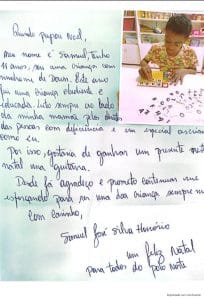 Querido papai Noel,
Meu nome é Samuel, tenho
anos, sou uma criança com
síndrome de Down. Este ano
fui uma criança estudante e
educada. Luto sempre ao lado
da minha mamãe pelos direitos
das pessoas com deficiência e em especial crianças
como eu.
Por isso, gostaria de ganhar um presente neste
natal uma guitarra.
Desde já agradeço e prometo continuar me
esforçando para ser uma boa criança sempre
Com carinho,
Samuel José Silva
um feliz Natal
para todos do polo norte